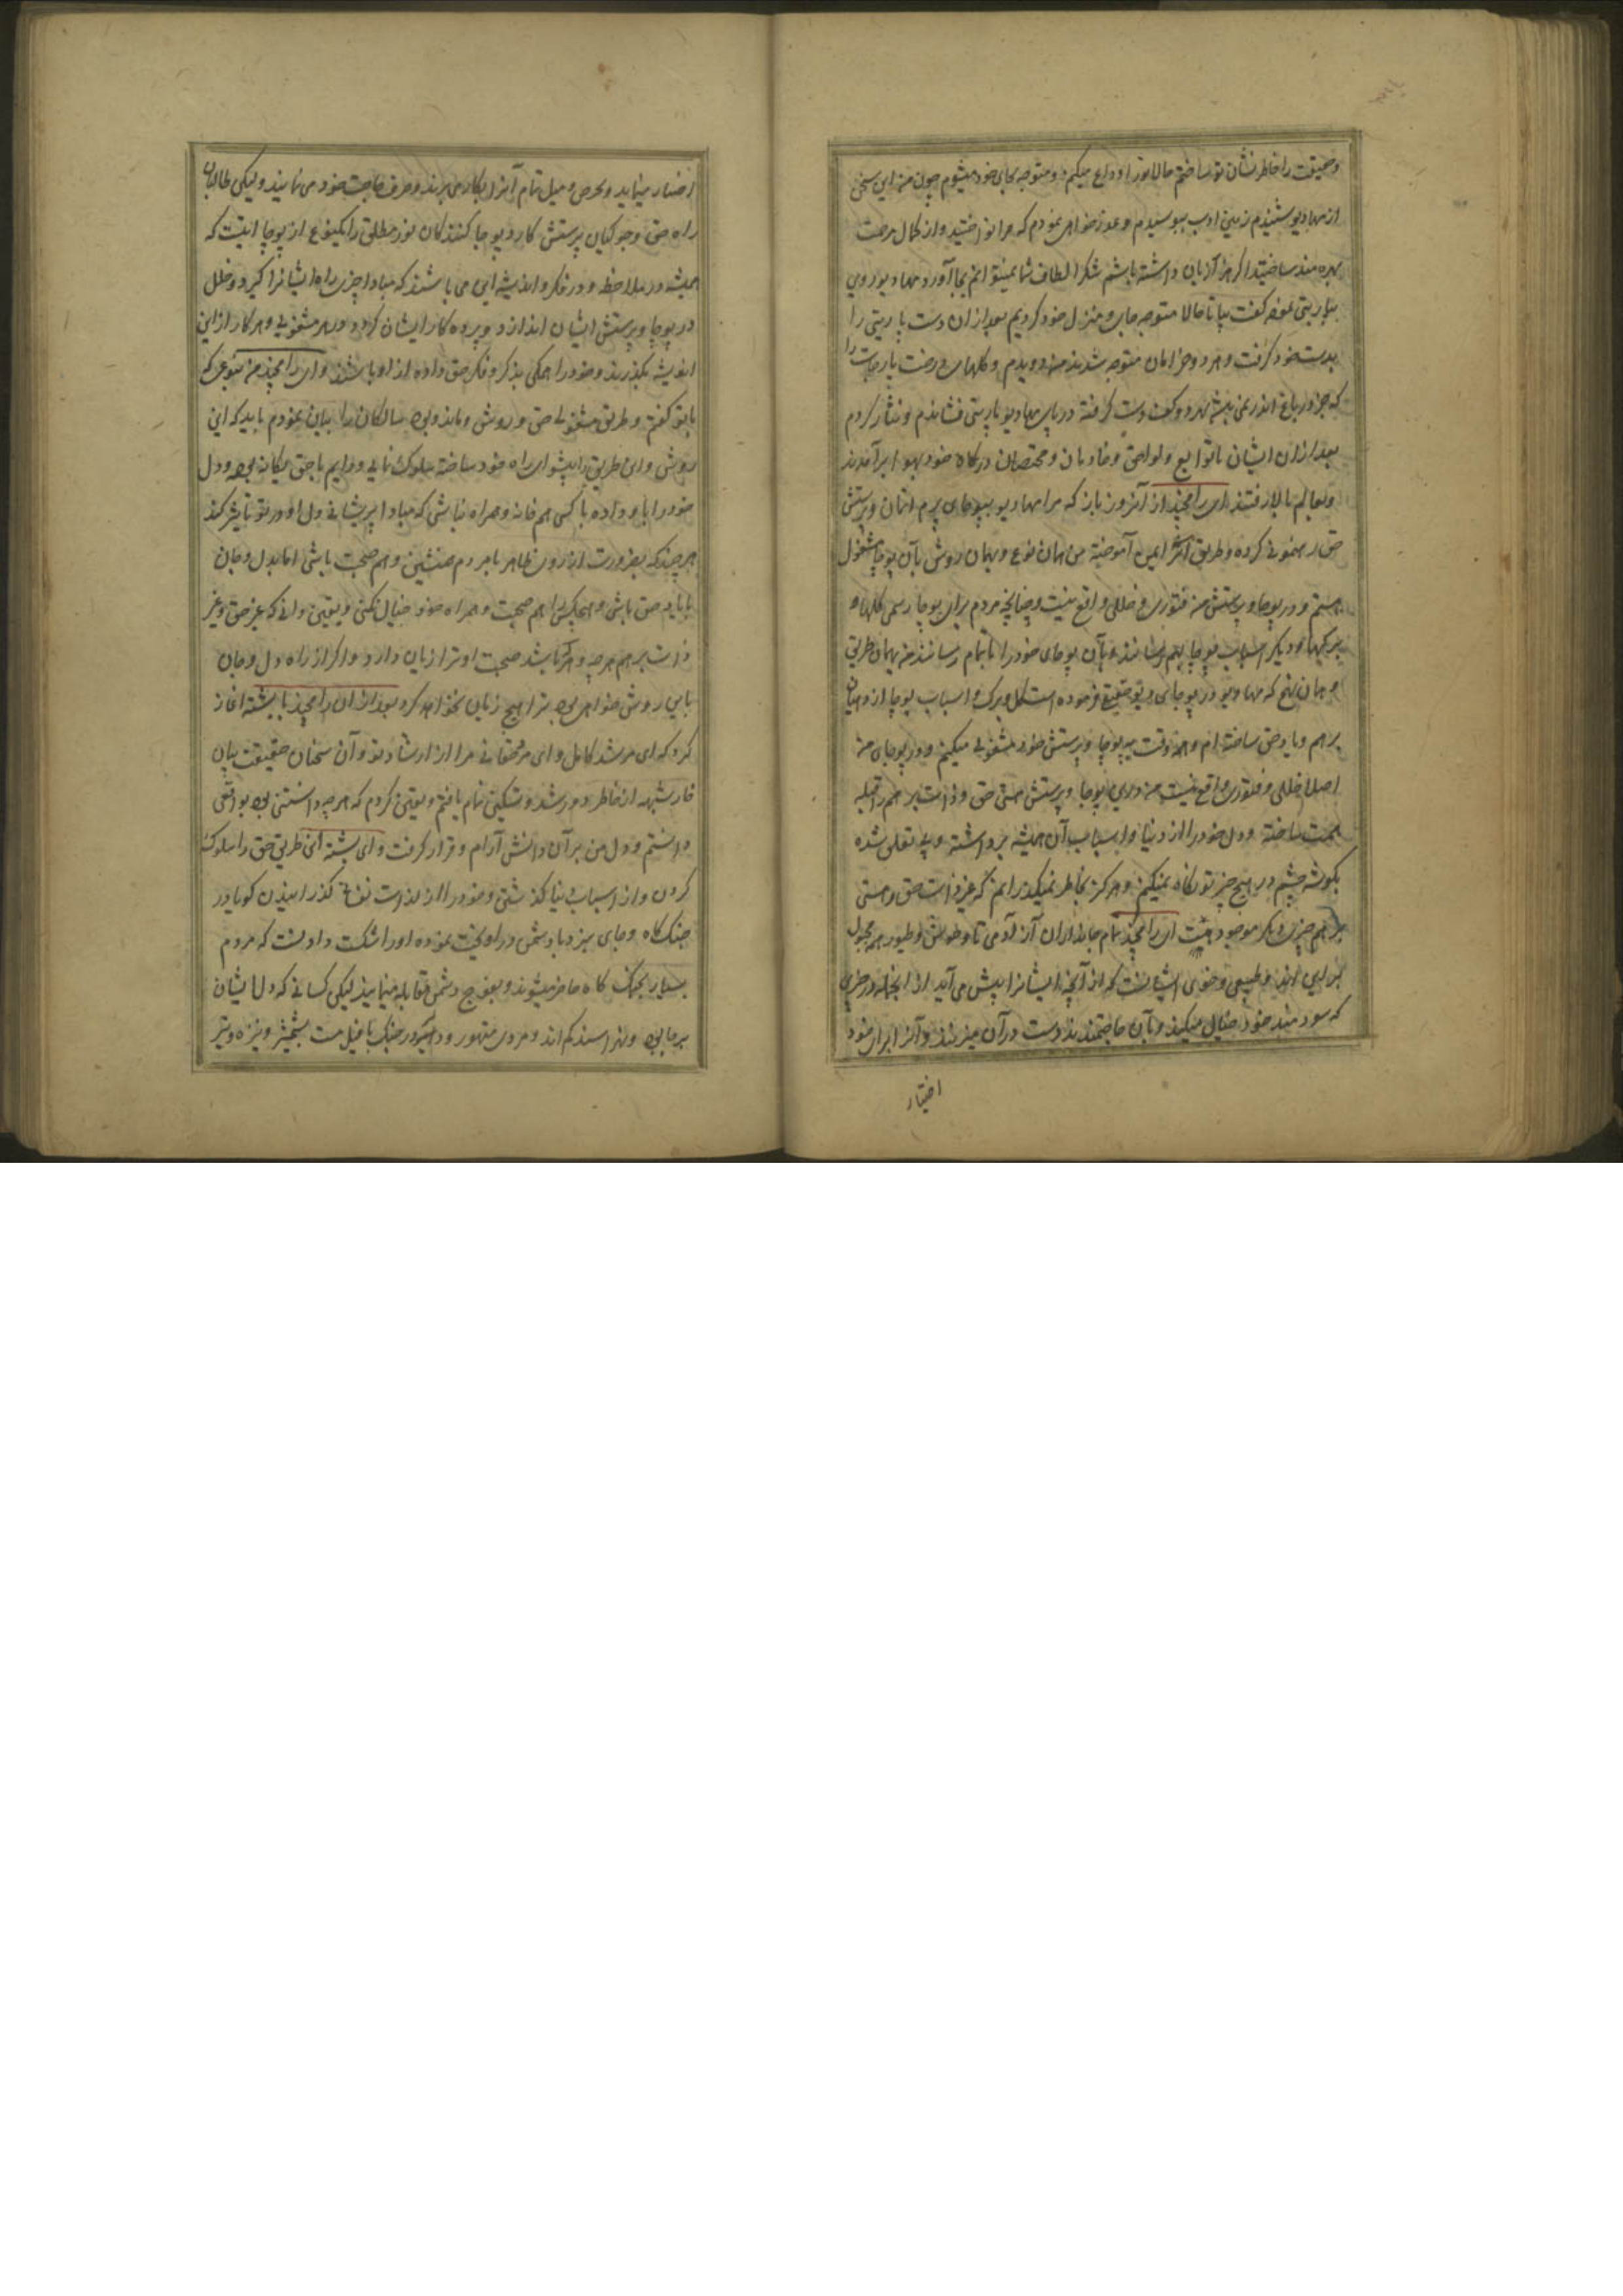 وحقیقت را خاطر نشان تو ساختم حالا ترا وداع میکنم و متوجه بجای خود میشوم چون من این سخن
از مهادیو شنیدم زمین ادب ببوسیدم و عذر خواهی نمودم که مرا نواختید و از کمال مرحمت
بهره مند ساختید اگر هزار زبان داشته باشم شکر الطاف شما نمیتوانم بجا آورد مهادیو روی
بپاربتی نموده گفت بیا تا حالا متوجه جای و منزل خود گردیم بعد از آن دست پاربتی را
بدست خود گرفت و هر دو خرامان متوجه شدند من دویدم و گلهای درخت پارجات را
که جز در باغ اندر نمی باشد بهر دو کف دست گرفته در پای مهادیو پاربتی فشاندم و نثار کردم
بعد از آن ایشان با توابع و لواحق و خادمان و مختصان درگاه خود بهوا برآمدند
و بعالم بالا رفتند ای رامچند از آنروز باز که مرا مهادیو به پوجای پرم آتمان و پرستش
حق رهنمونی کرده و طریق آنرا بمن آموخته من بهمان نوع و بهمان روش بآن پوجا مشغول
هستم و در پوجا و پرستش من فتوری و خللی واقع نیست و چنانچه مردم برای پوجا رسمی گلها و
برگها و دیگر اسباب پوجا بهم رسانند و بآن پوجای خود را باتمام رسانند من بهمان طریق
و همان نهج که مهادیو در پوجای دیو حقیقی فرموده است گل و برگ و اسباب پوجا از دهیان
برهم و یاد حق ساخته ام و همه وقت به پوجا و پرستش خود مشغولی میکنم و در پوجای من
اصلا خللی و فتوری واقع نیست من درین پوجا و پرستش هستی حق و ذات برهم را قبله
همت ساخته و دل خود را از دنیا و اسباب آن همیشه برداشته و بی تعلق شده
بگوشه چشم در هیچ چیز تو نگاه نمیکنم و هرگز بخاطر نمیگذرانم که غیر ذات حق و هستی
برهم چیزی دیگر موجود هست ای رامچند تمام جانداران از آدمی تا وحوش و طیور همه مجبول
برین اند و طبیعی و خوی ایشانست که از آنچه ایشانرا پیش می آید از انجمله در چیزی
که سودمند خود خیال میکنند و بآن حاجتمندند دست در آن میزنند و آنرا برای خود
اختیار
اختیار مینمایند و بحرص و میل تمام آنرا بکار می برند و صرف حاجت خود می نمایند ولیکن طالبان
راه حق و جوگیان پرستش کار و پوجا کنندگان نور مطلق را یکنوع از پوجا اینست که
همیشه در ملاحظه و در فکر و اندیشه این می باشند که مبادا چیزی راه ایشانرا گیرد و خلل
در پوجا و پرستش ایشان اندازد و پرده کار ایشان گردد و در هر مشغولی و هر کار از این
اندیشه نگذرند و خود را همگی بذکر و فکر حق داده از او باشند و ای رامچند من بنوعی که
با تو گفتم و طریق مشغولی حق و روش و ماند و بود سالکان را بیان نمودم باید که این
روش و این طریق را پیشوای راه خود ساخته سلوک نمائی و دایم با حق یگانه بوده و دل
خود را باو داده با کسی هم خانه و همراه نباشی که مبادا پریشانی دل او در تو تاثیر کند
هر چند که بضرورت از روی ظاهر با مردم همنشین و هم صحبت باشی اما بدل و جان
با یاد حق باشی و هیچکس را هم صحبت و همراه خود خیال نکنی و یقین دانی که غیر حق و غیر
ذات برهم هر چه و هر که باشد صحبت او ترا زیان دارد و اگر از راه دل و جان
باین روش خواهی بود ترا هیچ زیان نخواهد کرد بعد از آن رامچند با بشسته آغاز
کرد که ای مرشد کامل و ای مرد حقانی مرا از ارشاد تو و آن سخنان حقیقت بیان
خار شبهه از خاطر دور شد و تسکین تمام یافتم و یقین کردم که هر چه دانستنی بود بواقعی
دانستم و دل من بر آن دانش آرام و قرار گرفت و ای بشسته این طریق حق را سلوک
کردن و از اسباب دنیا گذشتن و خود را از لذات نفسانی گذرانیدن گویا در
جنگ گاه و جای نبرد با دشمن در آویخت نموده او را شکست دادنست که مردم
بسیار بجنگ گاه حاضر میشوند و بفوج دشمن مقابله مینمایند لیکن کسانی که دل ایشان
برجا بوده و نهراسند کم اند و مردی متهور و دلیر در جنگ با فیل مست بشمشیر و نیزه و تیر